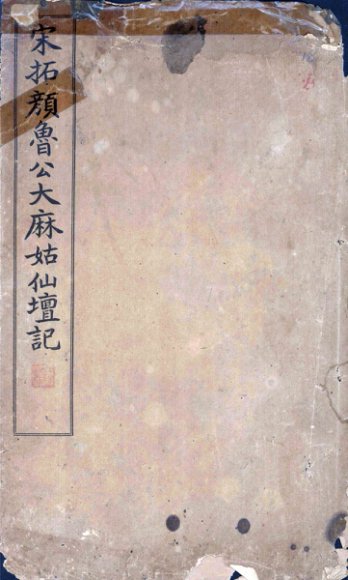 宋拓顔魯公大麻姑仙壇記